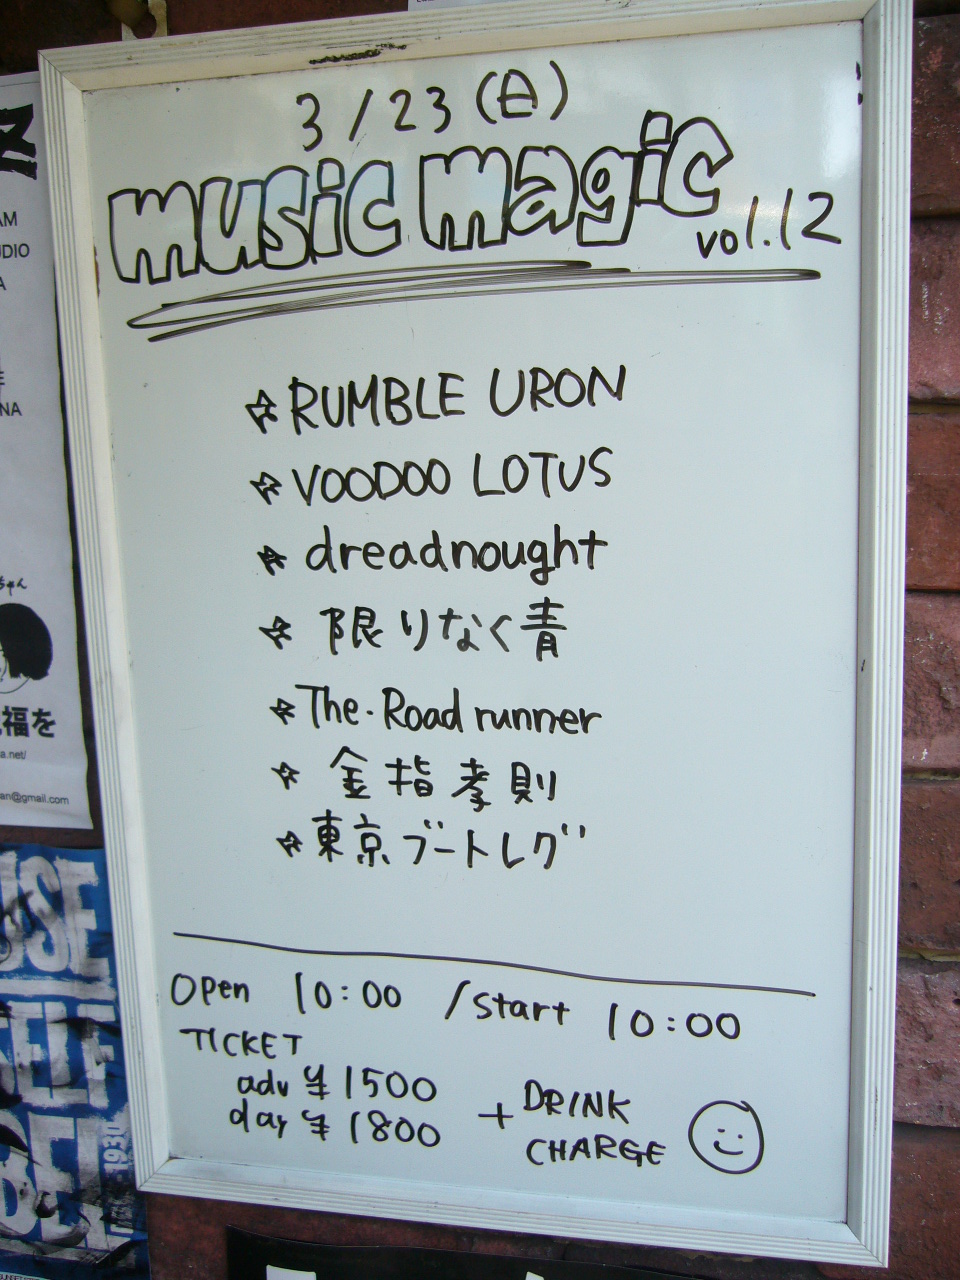 3/23(日)
music magic vol.12
☆ RUMBLE URON
☆ VOODOO LOTUS
☆ dreadnought
☆ 限りなく青
☆ The・Road runner
☆ 金指孝則
☆ 東京ブートレグ
open 10:00 /start 10:00
TICKET
adv ¥1500
day ¥1800
+ DRINK
CHARGE
AM
UDIO
A
NA
ちゃん
福を
a.net/
an@gmail.com
USE
ELF
1930